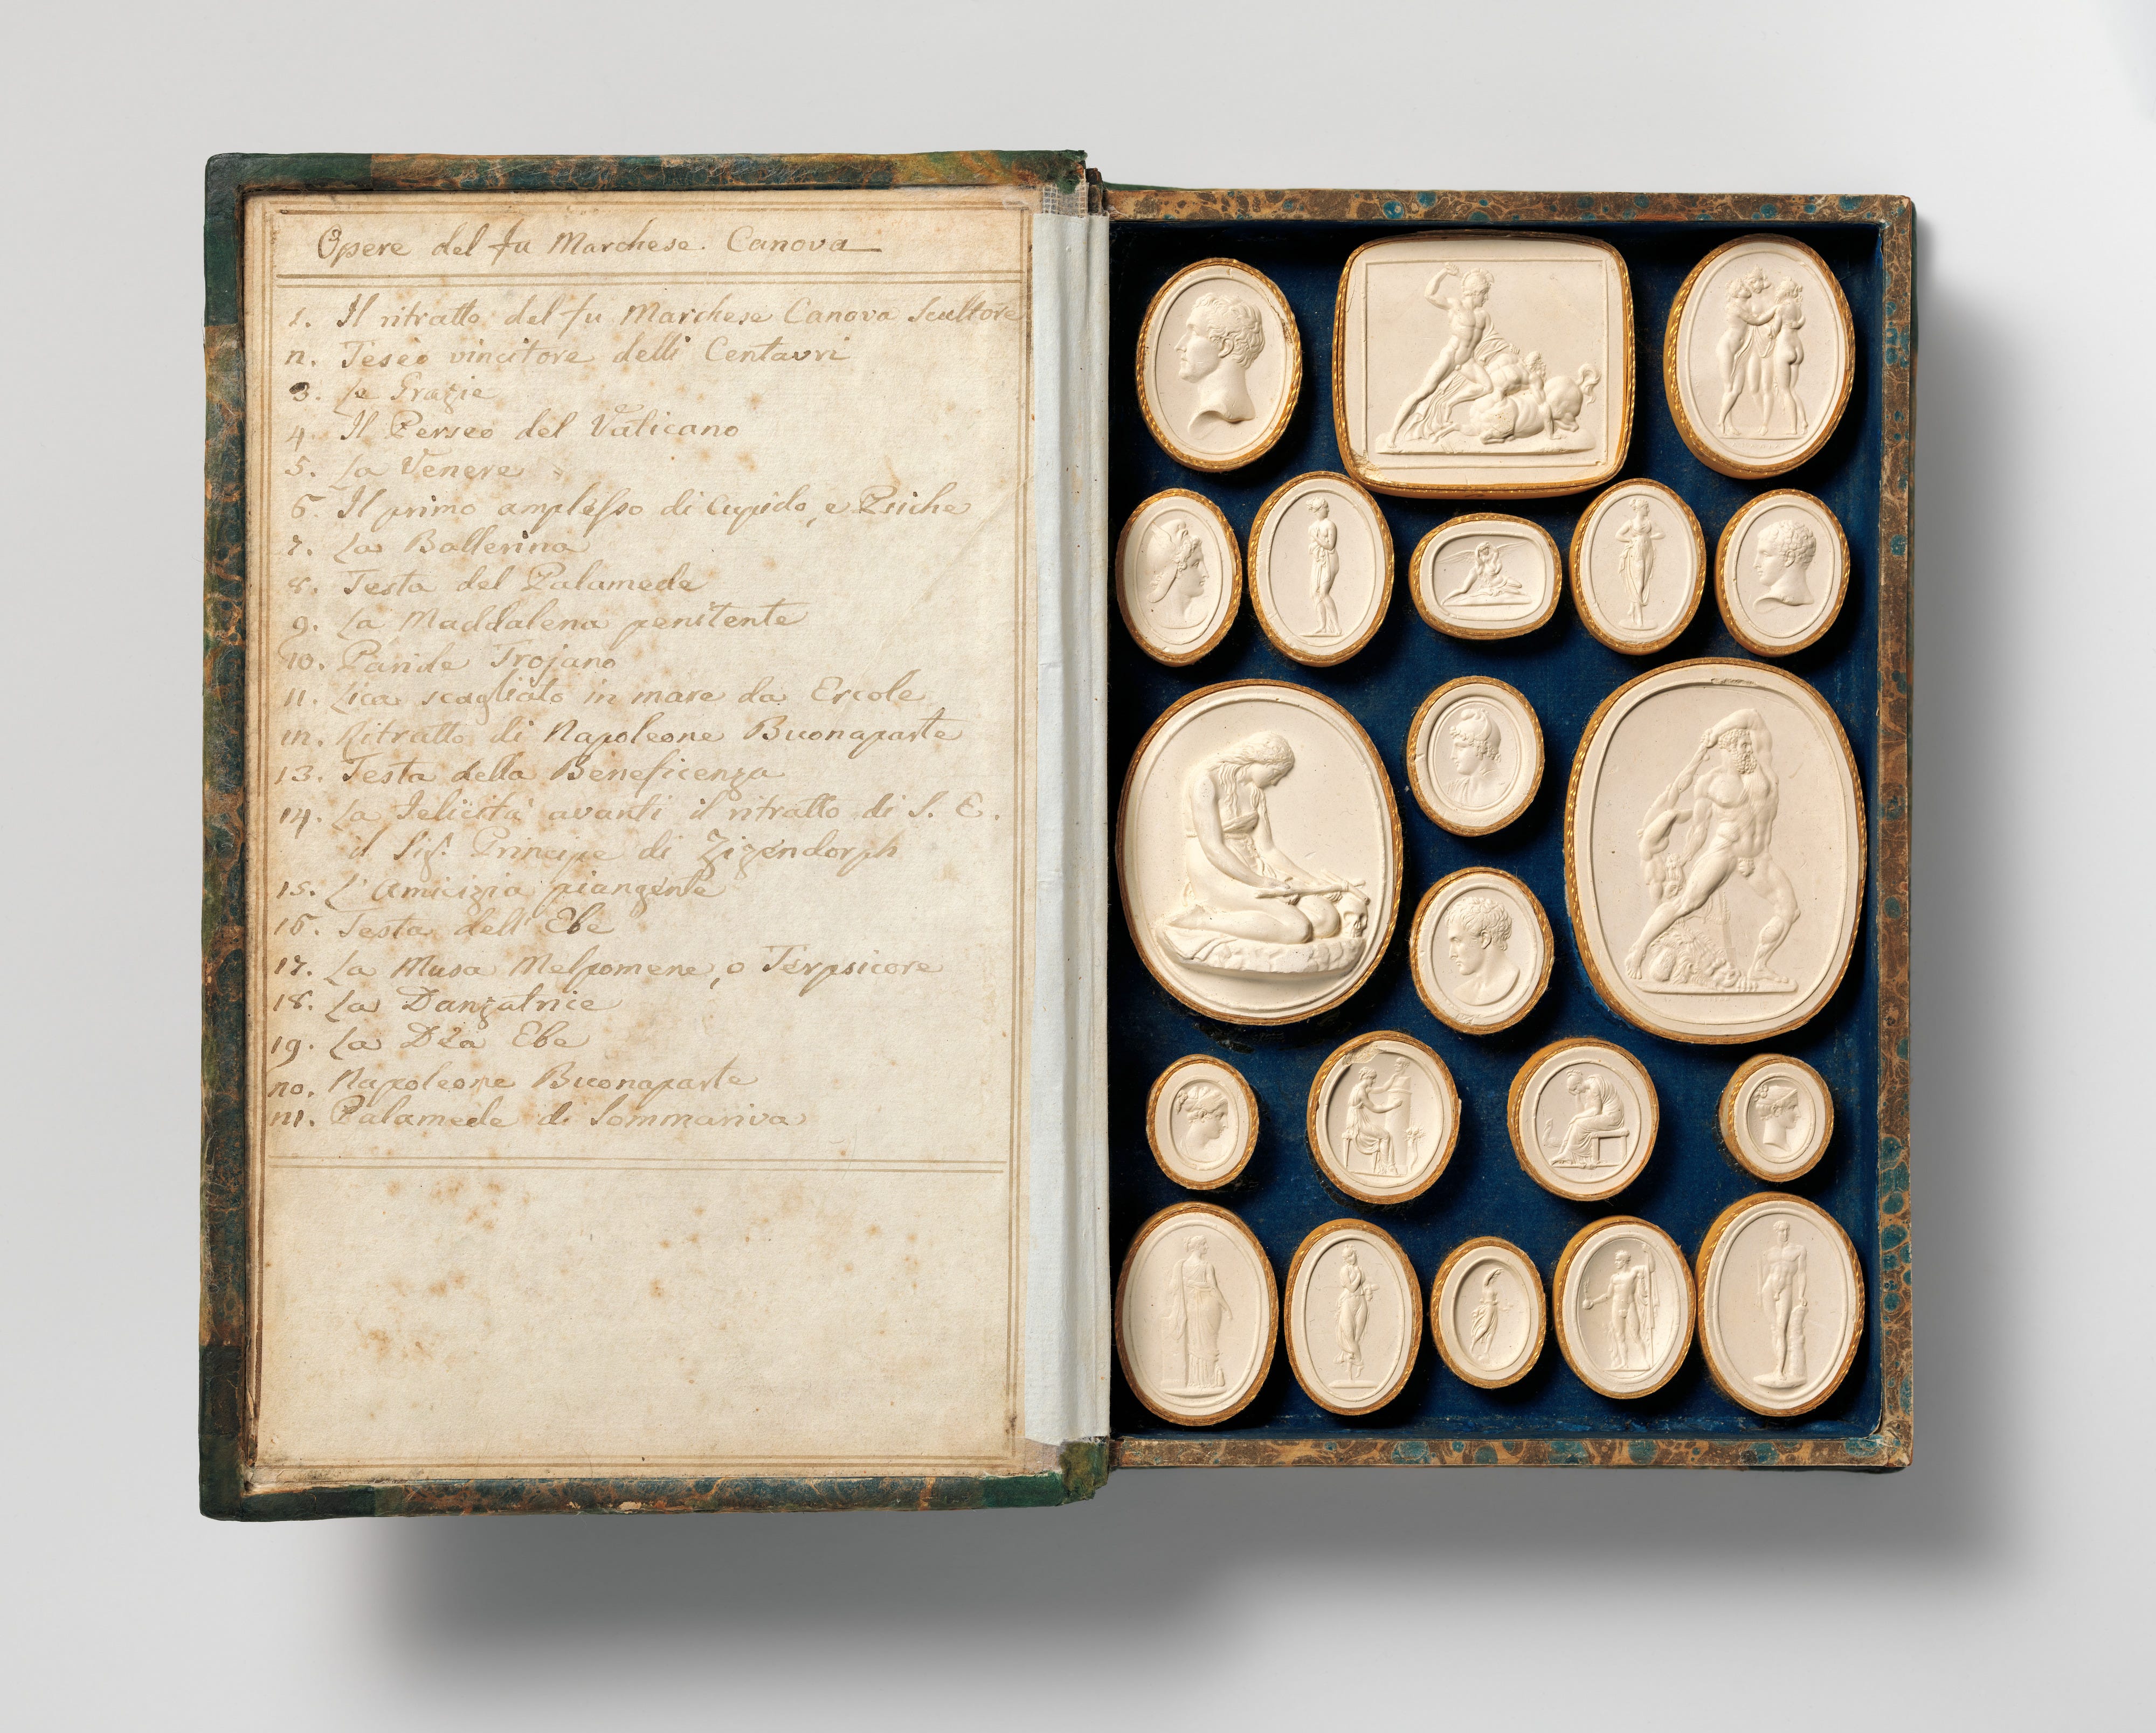 Opere del fu Marchese Canova
1. Il ritratto del fu Marchese Canova Scultore
n. Teseo vincitore delli Centauri
3. Le Grazie
4. Il Perseo del Vaticano
5. La Venere
6. Il primo amplesso di Cupido, e Psiche
7. La Ballerina
8. Testa del Palamede
9. La Maddalena penitente
10. Paride Trojano
11. Lica scagliato in mare da Ercole
1n. Ritratto di Napoleone Buonaparte
13. Testa della Beneficenza
14. La Felicità avanti il ritratto di S. E.
il Sig. Principe di Zizendorph
15. L'Amicizia piangente
16. Testa dell' Ebe
17. La Musa Melpomene, o Terpsicore
18. La Danzatrice
19. La Dea Ebe
no. Napoleone Buonaparte
n1. Palamede di Sommariva